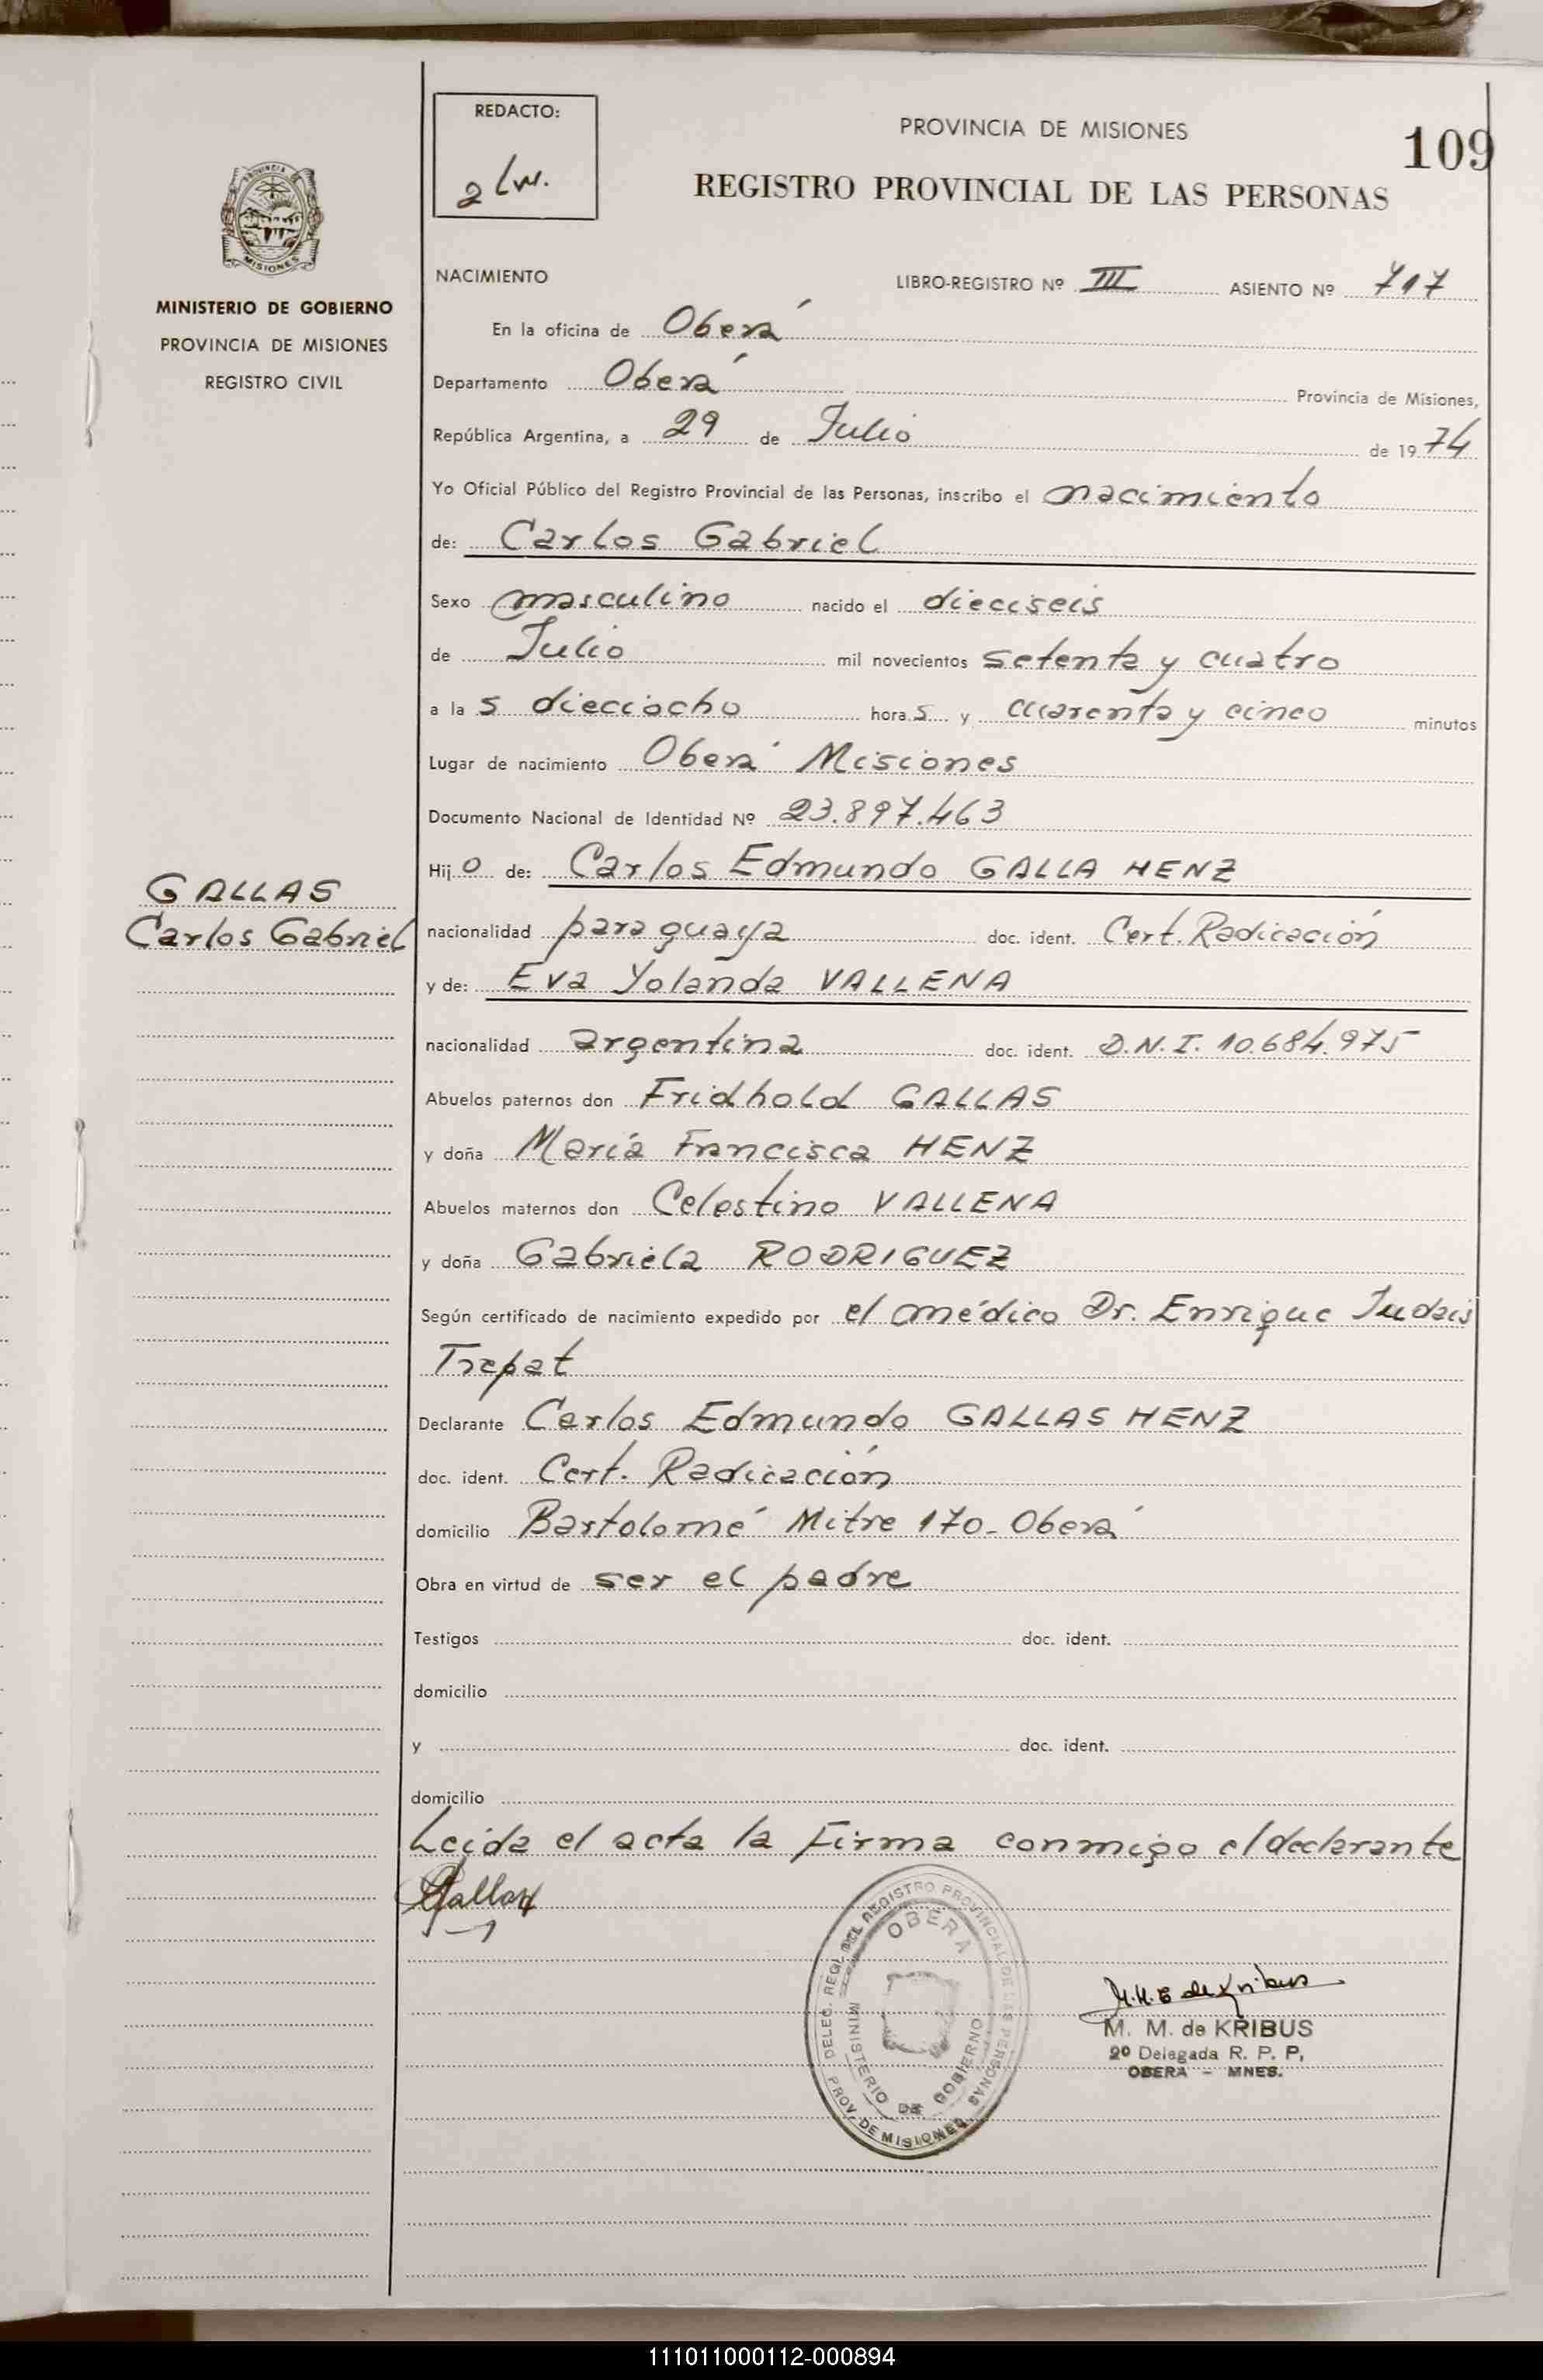 REDACTO:
PROVINCIA DE MISIONES
109
REGISTRO PROVINCIAL DE LAS PERSONAS
PROVINCIA DE
MISIONES
MINISTERIO DE GOBIERNO
PROVINCIA DE MISIONES
REGISTRO CIVIL
NACIMIENTO LIBRO-REGISTRO Nº III ASIENTO Nº 717
En la oficina de Oberá
Departamento Oberá Provincia de Misiones,
República Argentina, a 29 de Julio de 1974
Yo Oficial Público del Registro Provincial de las Personas, inscribo el nacimiento
de: Carlos Gabriel
Sexo masculino nacido el dieciseis
de Julio mil novecientos setenta y cuatro
a las dieciocho horas y cuarenta y cinco minutos
Lugar de nacimiento Oberá Misiones
Documento Nacional de Identidad Nº 23.897.463
Hijo de: Carlos Edmundo GALLA HENZ
GALLAS
Carlos Gabriel
nacionalidad paraguaya doc. ident. Cert. Radicación
y de: Eva Yolanda VALLENA
nacionalidad argentina doc. ident. D.N.I. 10.684.975
Abuelos paternos don Fridhold GALLAS
y doña María Francisca HENZ
Abuelos maternos don Celestino VALLENA
y doña Gabriela RODRIGUEZ
Según certificado de nacimiento expedido por el médico Dr. Enrique Judais
Trepat
Declarante Carlos Edmundo GALLAS HENZ
doc. ident. Cert. Radicación
domicilio Bartolomé Mitre 170-Oberá
Obra en virtud de ser el padre
Testigos doc. ident.
domicilio
y doc. ident.
domicilio
Leida el acta la Firma conmigo el declarante
Gallas
DELEG. REGL. DEL REGISTRO PROVINCIAL DE LAS PERSONAS
OBERÁ
MINISTERIO DE GOBIERNO
PROV. DE MISIONES
M. M. de KRIBUS
2º Delegada R. P. P.
OBERA - MNES.
111011000112-000894